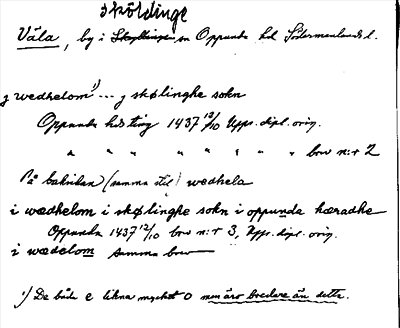 Sköldinge
Våla, by i Skyttinge sn Oppunda hd Södermanlands l.
j wedhelom¹) ... j skølinghe sokn
Oppunda hds ting 1437 12/10 Upps. dipl. orig.
" " " " " " " " brev n:r 2
På baksidan (samma stil) wedhela
i wædhelom i skølinghe sokn i oppunda hæradhe
Oppunda 1437 12/10 brev n:r 3, Upps. dipl. orig.
i wædelom samma brev
¹) De båda e likna mycket o men äro bredare än detta.